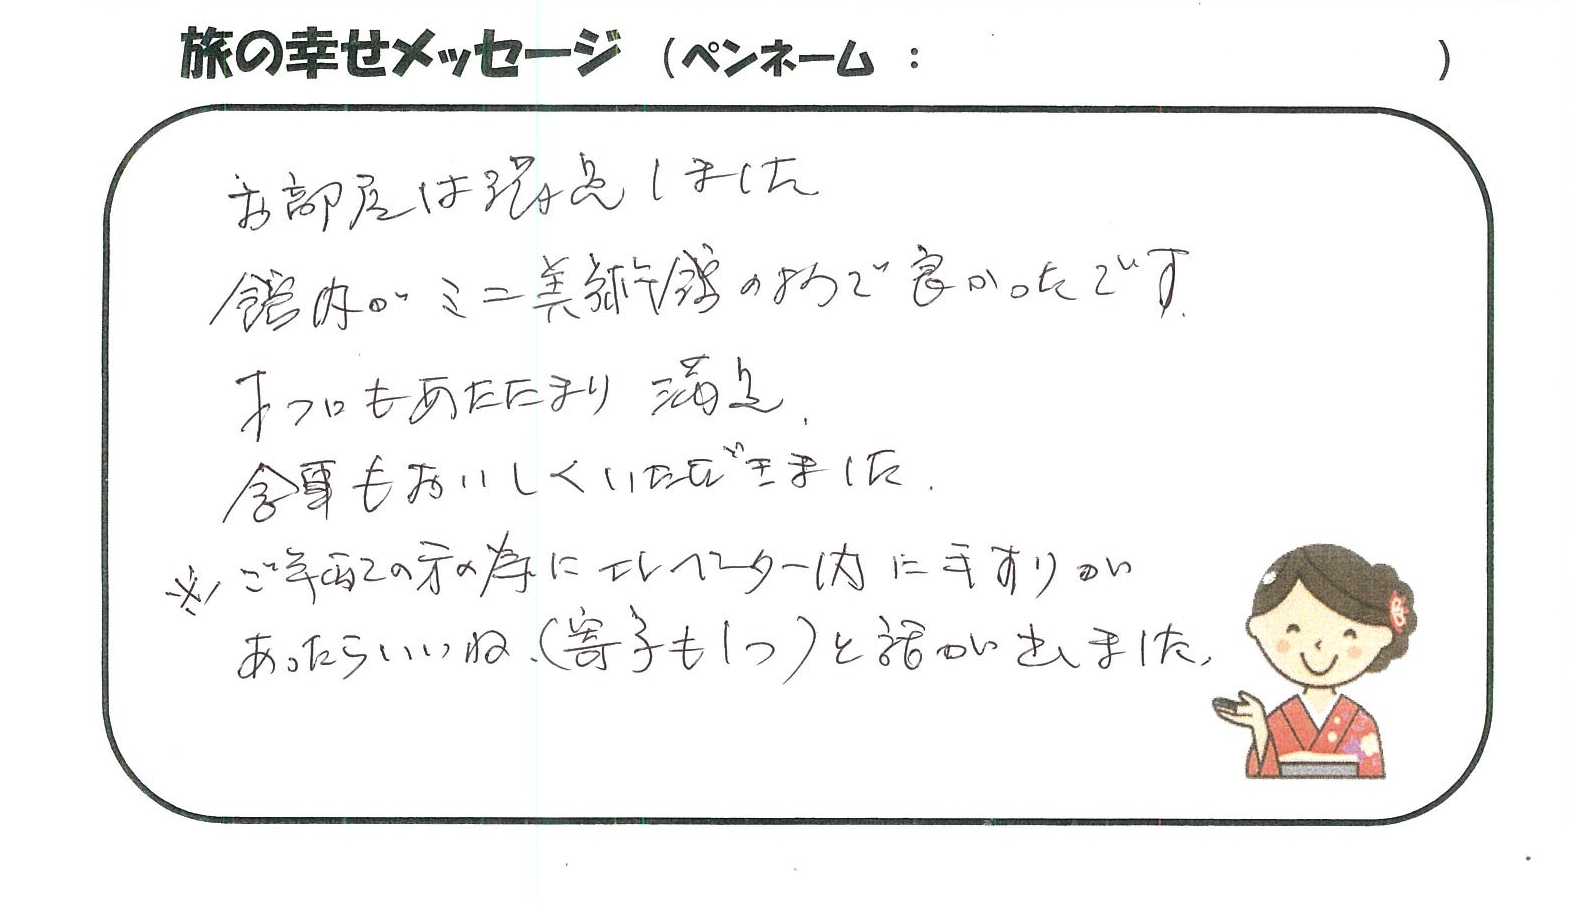 旅の幸せメッセージ (ペンネーム : )
お部屋は満点しました
館内がミニ美術館の物で良かったです.
オフロもあたたまり 満点.
食事もおいしくいただきました.
※ ご年配の方の為に エレベーター内に手すりが
あったらいいね、(寄子も1つ)と話が出ました、